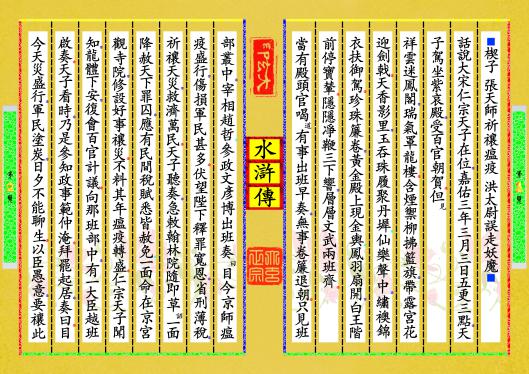 楔子 張天師祈禳瘟疫 洪太尉誤走妖魔
話說大宋仁宗天子在位嘉佑三年三月三日五更三點天
子駕坐紫宸殿受百官朝賀但見
祥雲迷鳳閣瑞氣罩龍樓含煙禦柳拂旌旗帶露宮花
迎劍戟天香影里玉簪珠履聚丹墀仙樂聲中繡襖錦
衣扶御駕珍珠簾卷黃金殿上現金輿鳳羽扇開白玉階
前停寶輦隱隱凈鞭三下響層層文武兩班齊
當有殿頭官喝道有事出班早奏無事卷簾退朝只見班
水滸傳
部叢中宰相趙哲參政文彥博出班奏曰目今京師瘟
疫盛行傷損軍民甚多伏望陛下釋罪寬恩省刑薄稅
祈禳天災救濟萬民天子聽奏急敕翰林院隨即草詔一面
降赦天下罪囚應有民間稅賦悉皆赦免一面命在京宮
觀寺院修設好事禳災不料其年瘟疫轉盛仁宗天子聞
知龍體不安復會百官計議向那班部中有一大臣越班
啟奏天子看時乃是參知政事範仲淹拜罷起居奏曰目
今天災盛行軍民塗炭日夕不能聊生以臣愚意要禳此